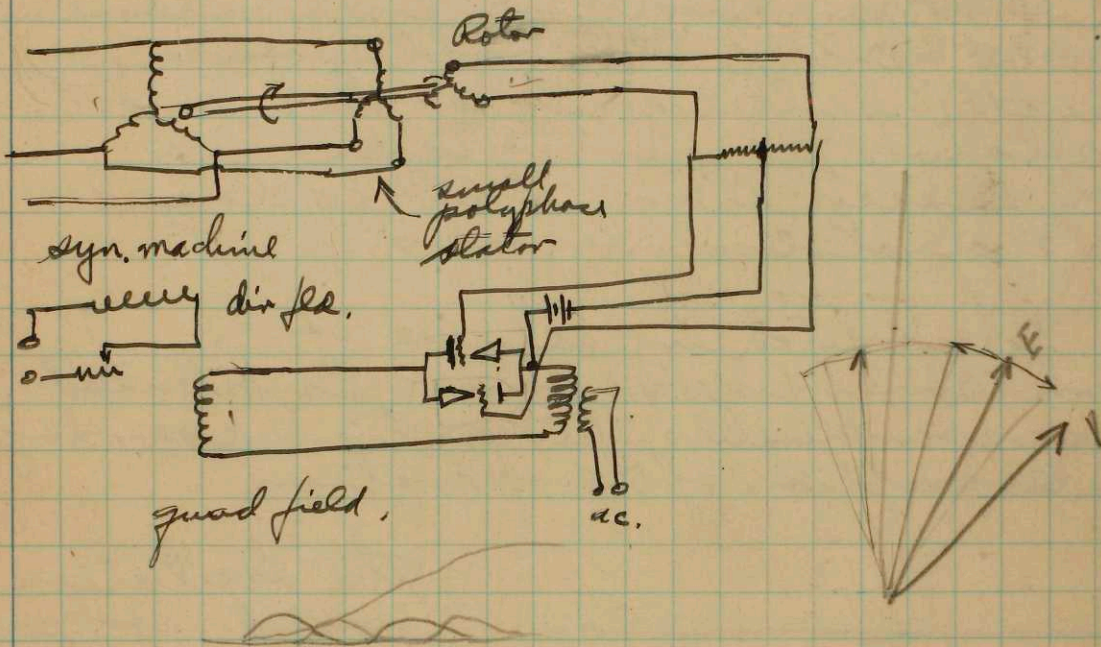 Rotor
small
polyphase
stator
syn. machine
dir fld.
E
quad field.
ac.